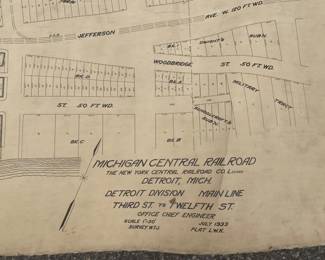 FARM
AVE. W. 120 FT WD.
JEFFERSON
BK.I
DWIGHT'S SUB'N.
WOODBRIDGE ST. 50 FT WD.
BK.D
BK.A
MILITARY TRACT
ST. 50 FT WD.
SUB'N.
BK.C
BK.B
MICHIGAN CENTRAL RAILROAD
THE NEW YORK CENTRAL RAILROAD CO. LESSEE
DETROIT, MICH.
DETROIT DIVISION MAIN LINE
THIRD ST. TO TWELFTH ST.
OFFICE CHIEF ENGINEER
SCALE 1"=50' JULY 1933
SURVEY W.T.J. PLAT L.W.K.